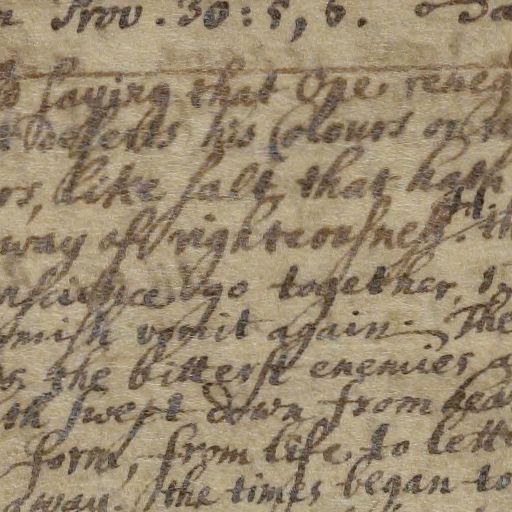 Prov. 30: 5, 6.
saying that One reneg
deserts his Colours or
rs, like salt that hath
way of righteousness. th
nscience go together,
omish vomit again. The
the bitterst enemies
th swept down from hea
form, from life to lett
away. the times began to